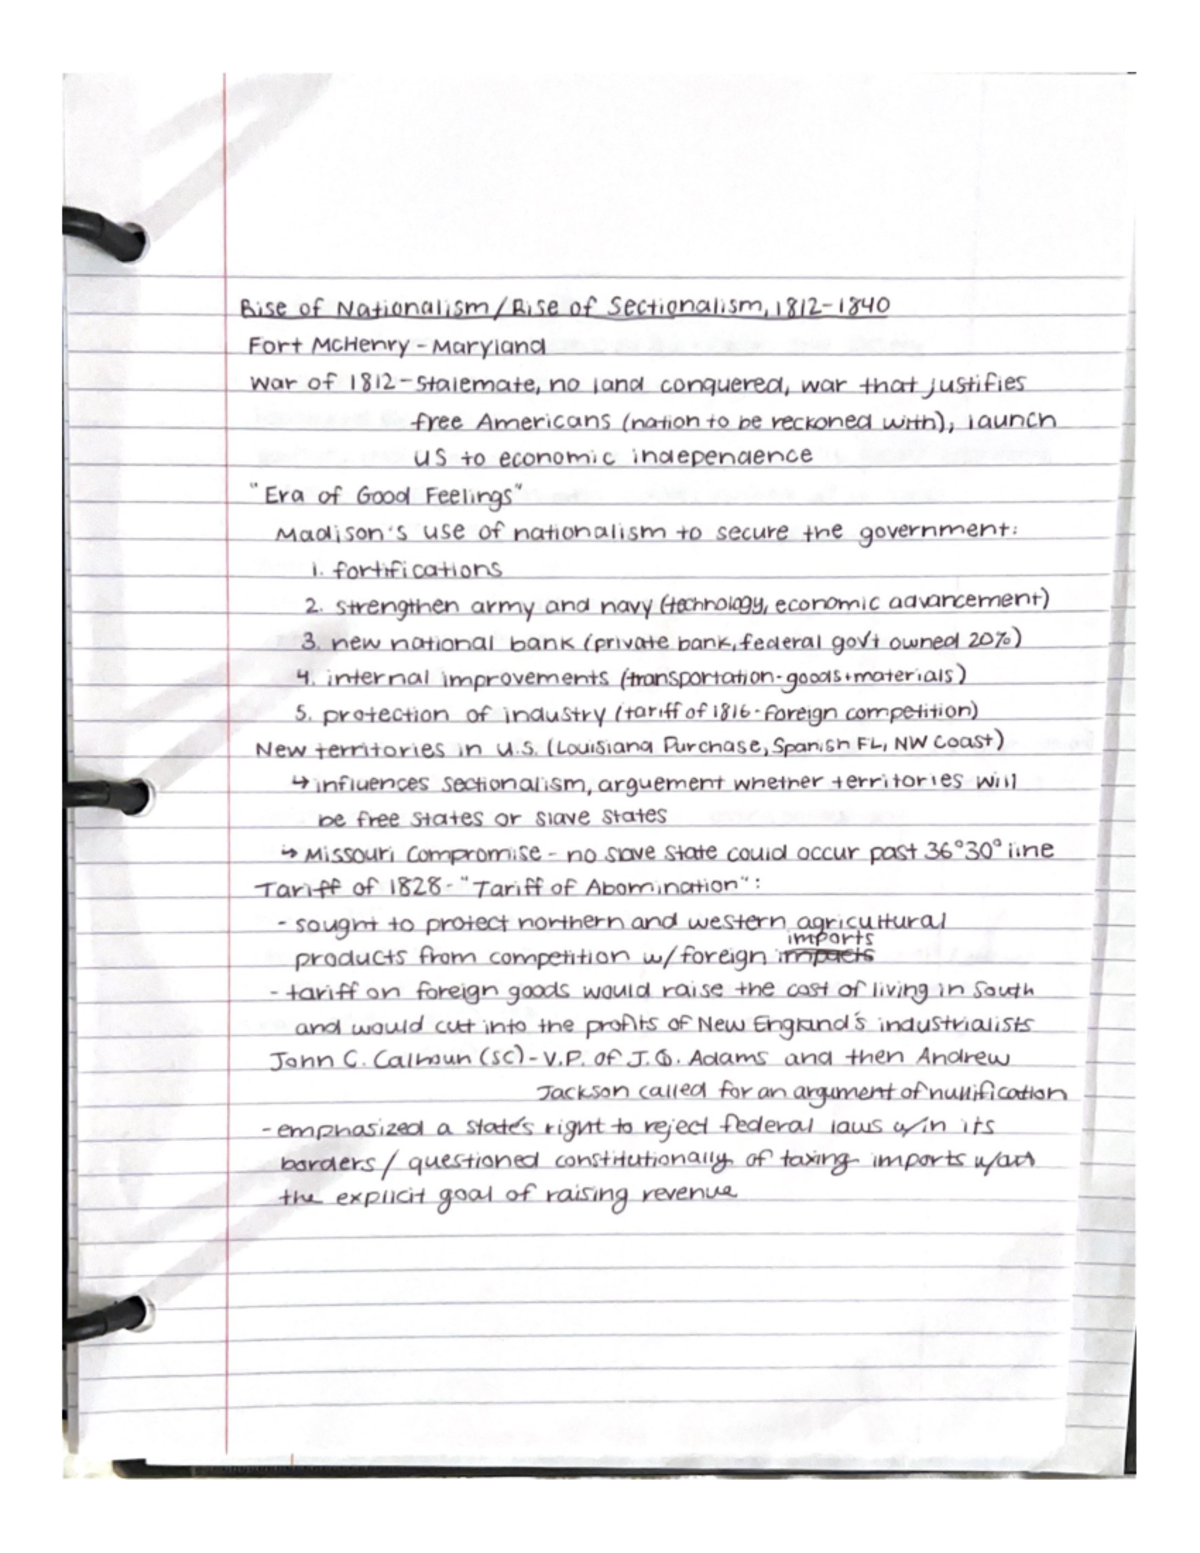 Rise of Nationalism/Rise of Sectionalism, 1812-1840
Fort McHenry - Maryland
War of 1812 - Stalemate, no land conquered, war that justifies
free Americans (nation to be reckoned with), launch
US to economic independence
"Era of Good Feelings"
Madison's use of nationalism to secure the government:
1. fortifications
2. strengthen army and navy (technology, economic advancement)
3. new national bank (private bank, federal gov't owned 20%)
4. internal improvements (transportation - goods + materials)
5. protection of industry (tariff of 1816 - foreign competition)
New territories in U.S. (Louisiana Purchase, Spanish FL, NW Coast)
↳ influences sectionalism, arguement whether territories will
be free states or slave states
↳ Missouri Compromise - no slave state could occur past 36°30° line
Tariff of 1828 - "Tariff of Abomination":
- sought to protect northern and western agricultural
imports
products from competition w/ foreign impacts
- tariff on foreign goods would raise the cost of living in South
and would cut into the profits of New England's industrialists
John C. Calhoun (SC) - V.P. of J.Q. Adams and then Andrew
Jackson called for an argument of nullification
- emphasized a state's right to reject federal laws w/in its
borders / questioned constitutionally of taxing imports w/out
the explicit goal of raising revenue